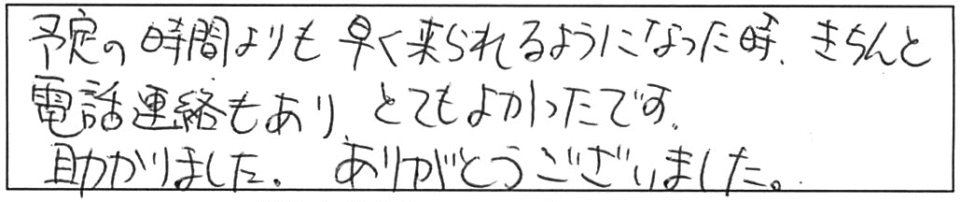 予定の時間よりも早く来られるようになった時、きちんと
電話連絡もあり、とてもよかったです。
助かりました。ありがとうございました。